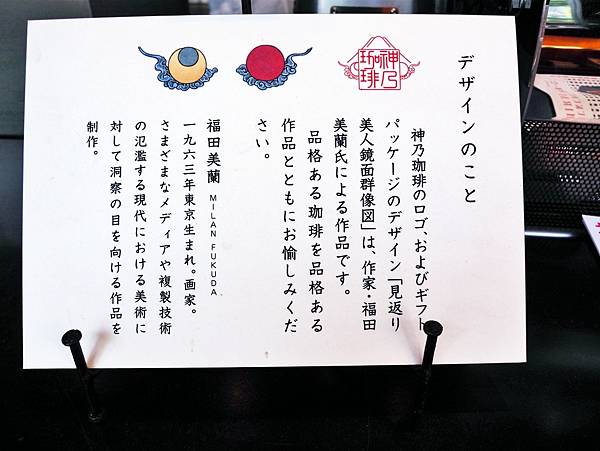 デザインのこと
神乃珈琲
神乃珈琲のロゴ、およびギフト
パッケージのデザイン「見返り
美人鏡面群像図」は、作家・福田
美蘭氏による作品です。
品格ある珈琲を品格ある
作品とともにお愉しみくだ
さい。
福田美蘭 MILAN FUKUDA
一九六三年東京生まれ。画家。
さまざまなメディアや複製技術
の氾濫する現代における美術に
対して洞察の目を向ける作品を
制作。